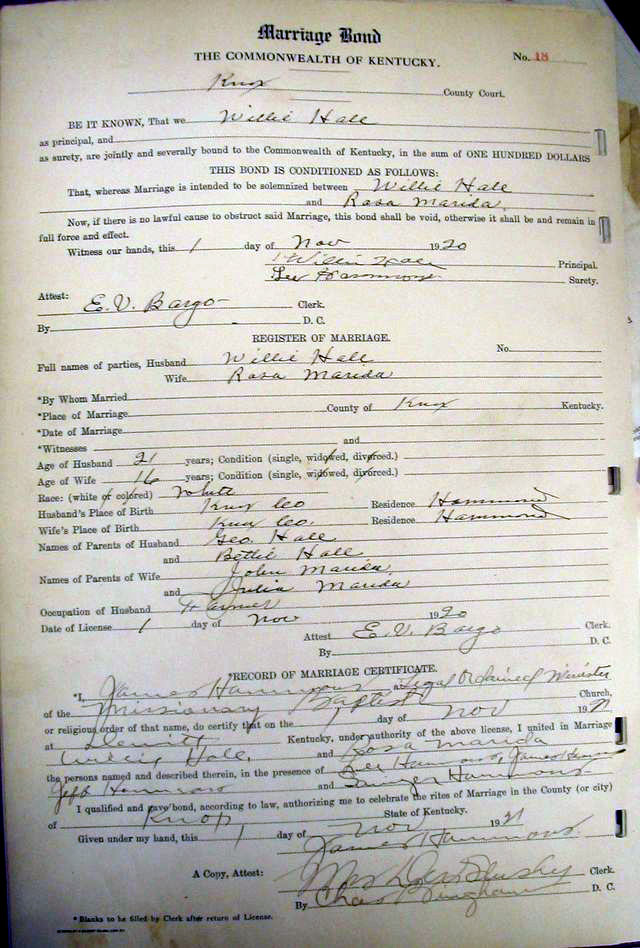 Marriage Bond
THE COMMONWEALTH OF KENTUCKY. No. 18
Knox County Court.
BE IT KNOWN, That we Willie Hall
as principal, and
as surety, are jointly and severally bound to the Commonwealth of Kentucky, in the sum of ONE HUNDRED DOLLARS
THIS BOND IS CONDITIONED AS FOLLOWS:
That, whereas Marriage is intended to be solemnized between Willie Hall
and Rosa Marida
Now, if there is no lawful cause to obstruct said Marriage, this bond shall be void, otherwise it shall be and remain in
full force and effect.
Witness our hands, this 1 day of Nov 1920
Willie Hall Principal.
Lee Hammons Surety.
Attest:
E. V. Bargo Clerk.
By D. C.
REGISTER OF MARRIAGE.
Full names of parties, Husband Willie Hall No.
Wife Rosa Marida
*By Whom Married
*Place of Marriage County of Knox Kentucky.
*Date of Marriage
*Witnesses and
Age of Husband 21 years; Condition (single, widowed, divorced.)
Age of Wife 16 years; Condition (single, widowed, divorced.)
Race: (white or colored) White
Husband's Place of Birth Knox Co Residence Hammond
Wife's Place of Birth Knox Co. Residence Hammond
Names of Parents of Husband Geo. Hall
and Bettie Hall
Names of Parents of Wife John Marida
and Julia Marida
Occupation of Husband Farmer
Date of License 1 day of Nov 1920
Attest E. V. Bargo Clerk.
By D. C.
*RECORD OF MARRIAGE CERTIFICATE.
*I, James Hammons a Legal Ordained Minister
of the Missionary Baptist Church,
or religious order of that name, do certify that on the day of Nov 1921
at Dewitt Kentucky, under authority of the above license, I united in Marriage
Willie Hall and Rosa Marida
the persons named and described therein, in the presence of Lee Hammons, James Hammons
Jeff Hammons and Hammons.
I qualified and gave bond, according to law, authorizing me to celebrate the rites of Marriage in the County (or city)
of Knop State of Kentucky.
Given under my hand, this 1 day of Nov 1921
James Hammons.
A Copy, Attest: Mrs Clerk.
By Chas Bingham D. C.
* Blanks to be filled by Clerk after return of License.